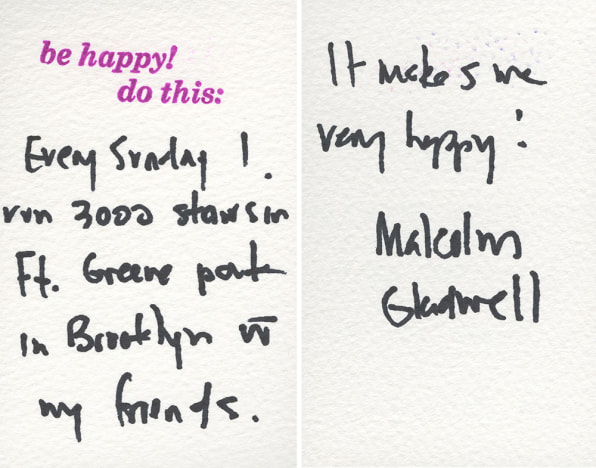 be happy!
do this:
Every Sunday I
run 3000 stairs in
Ft. Greene park
in Brooklyn w
my friends.
It makes me
very happy!
Malcolm
Gladwell